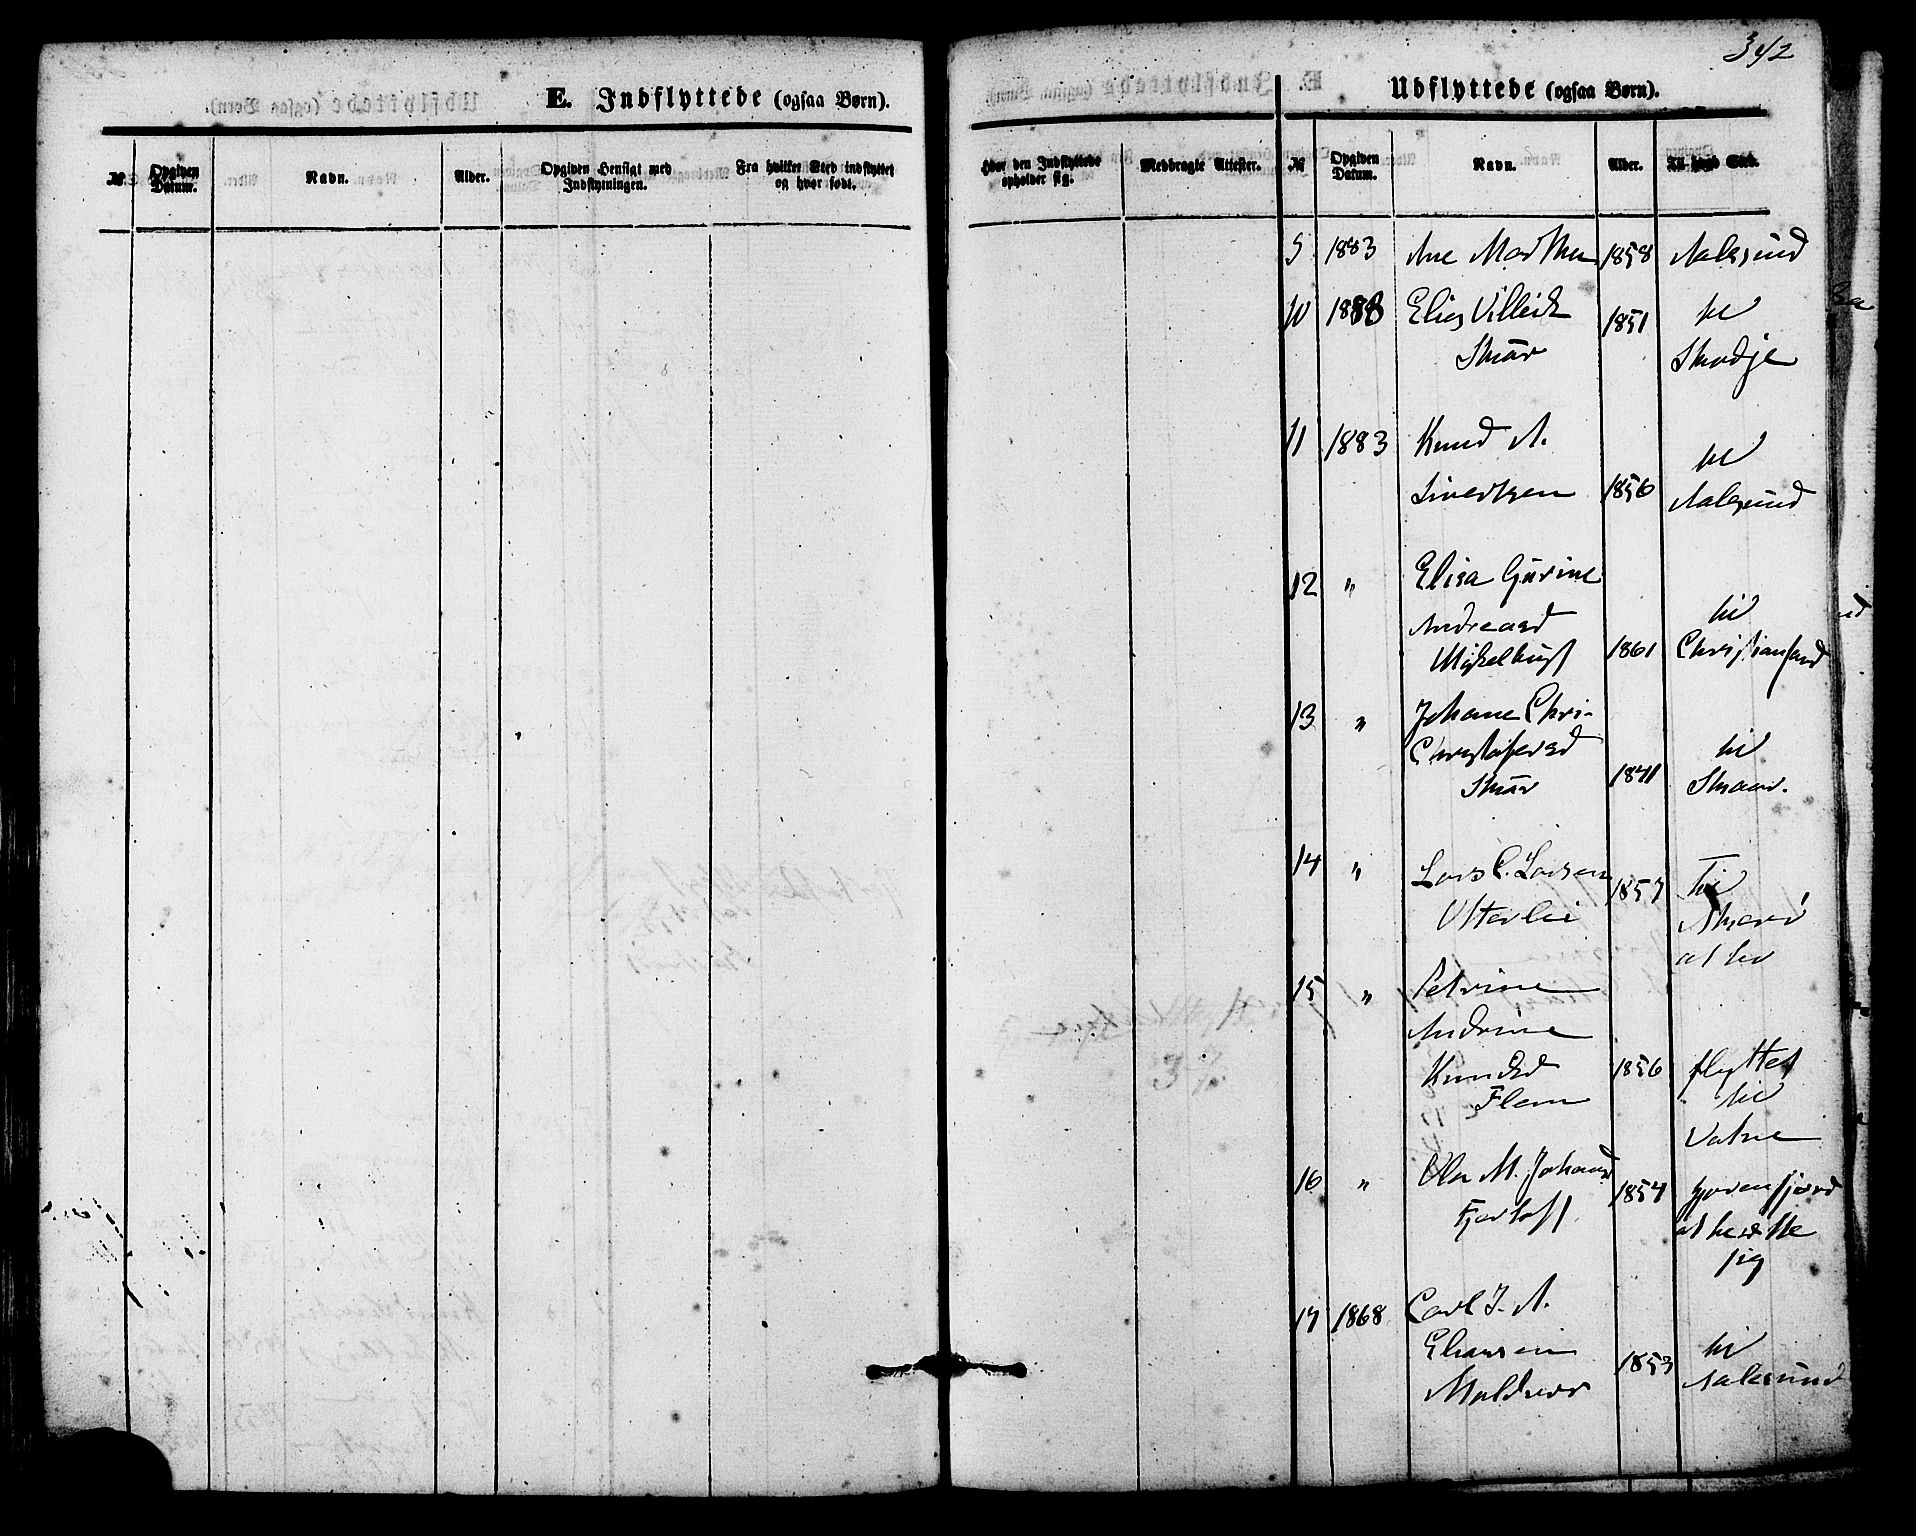 342
E. Indflyttede (ogsaa Børn).
№ Opgiven Datum. Navn. Alder. Opgiven Hensigt med Indflytningen. Fra hvilket Sted indflyttet og hvor født. Hvor den Indflyttede opholder sig. Medbragte Attester.
Udflyttede (ogsaa Børn).
№ Opgiven Datum. Navn. Alder.
1883 Ane Marthea 1858 Aalesund
10 1883 Elias Villeik 1851 til
Skår Skodje
11 1883 Knud A. til
Sivertsen 1856 Aalesund
12 " Elisa Gurine
Andreasd til
Mykelbust 1861 Christiansund
13 " Johane Chri-
Christofersd til
Skår 1841 Skaar.
14 " Lars C. Larsen 1857 Til
Ytterlie
15 " Petrine
Andrine
Knudsd 1856 flyttet
Flem til
Vatne
16 " Ola M. Johans 1854
Fjørtoft at
sig
17 1868 Carl J. A.
Eliassen 1853 til
Aalesund